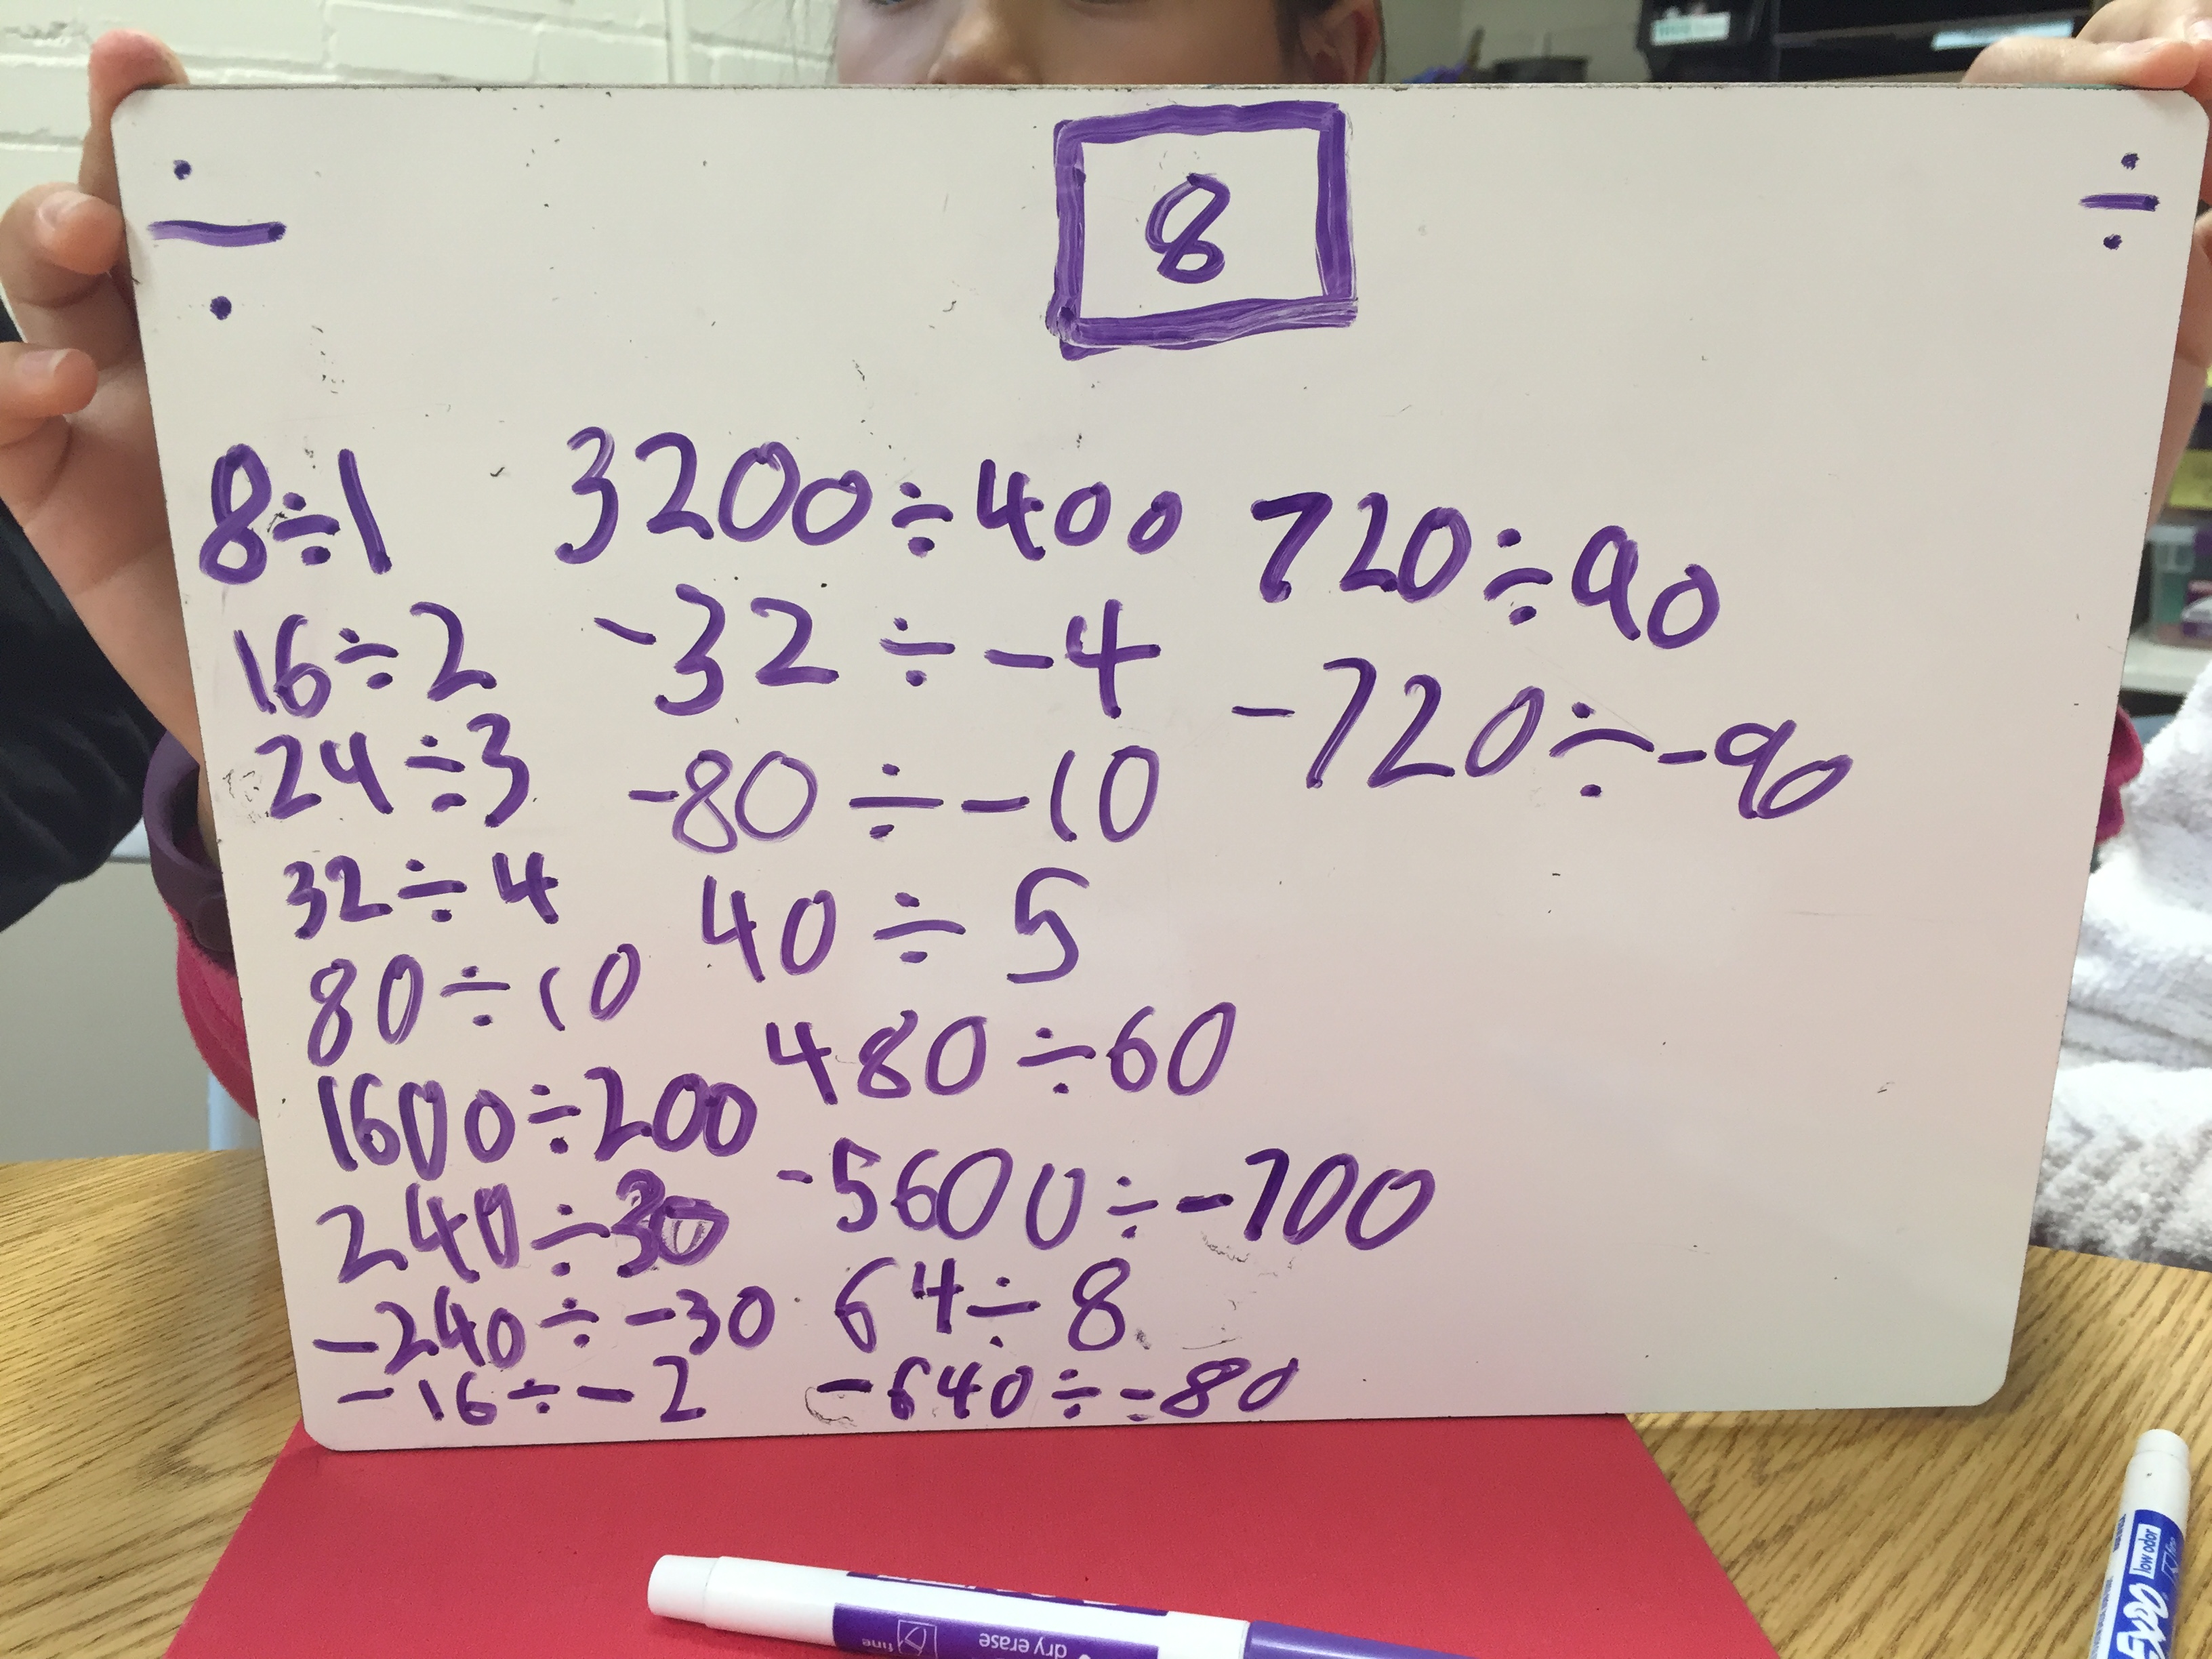 ÷
8
÷
8÷1
16÷2
24÷3
32÷4
80÷10
1600÷200
240÷30
-240÷-30
-16÷-2
3200÷400
-32÷-4
-80÷-10
40÷5
480÷60
-5600÷-700
64÷8
-640÷-80
720÷90
-720÷-90
dry erase
fine
EXPO
low odor